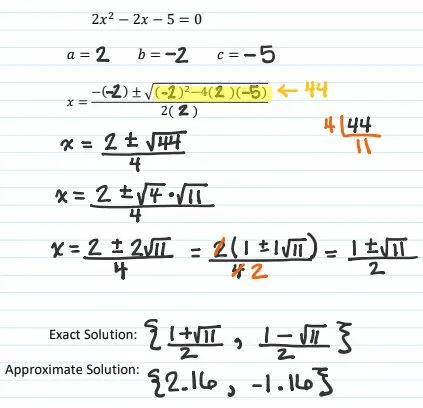 2x² − 2x − 5 = 0
a = 2 b = −2 c = −5
x = −(−2) ± √(−2)²−4(2)(−5) / 2(2) ← 44
x = 2 ± √44 / 4 4 | 44
11
x = 2 ± √4 · √11 / 4
x = 2 ± 2√11 / 4 = 2(1 ± 1√11) / 4 2 = 1 ± √11 / 2
Exact Solution: {1+√11 / 2 , 1−√11 / 2}
Approximate Solution: {2.16 , −1.16}